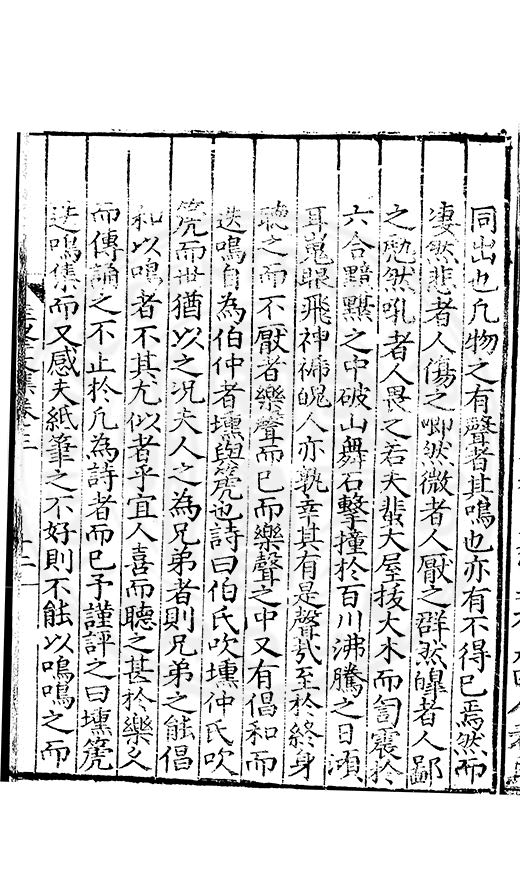 同出也凡物之有聲者其鳴也亦有不得已焉然而
凄然悲者人傷之啾然微者人厭之群然嘷者人鄙
之虩然吼者人畏之若夫蜚大屋拔大木而訇震於
六合黯黮之中破山舞石擊撞於百川沸騰之日澒
耳蒐眼飛神褫魄人亦孰幸其有是聲哉至於終身
聽之而不厭者樂聲而已而樂聲之中又有倡和而
迭鳴自為伯仲者壎與箎也詩曰伯氏吹壎仲氏吹
箎而世猶以之況夫人之為兄弟者則兄弟之能倡
和以鳴者不其尤似者乎宜人喜而聽之甚於樂久
而傳誦之不止於凡為詩者而已予謹評之曰壎箎
迭鳴集而又感夫紙筆之不好則不能以鳴鳴之而
文集卷三